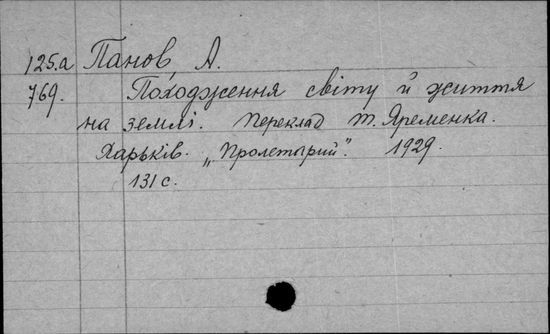 125.a Панов, А.
769. Походження світу й життя
на землі. Переклад Т. Яременка.
Харьків. „Пролетарий“. 1929.
131 с.